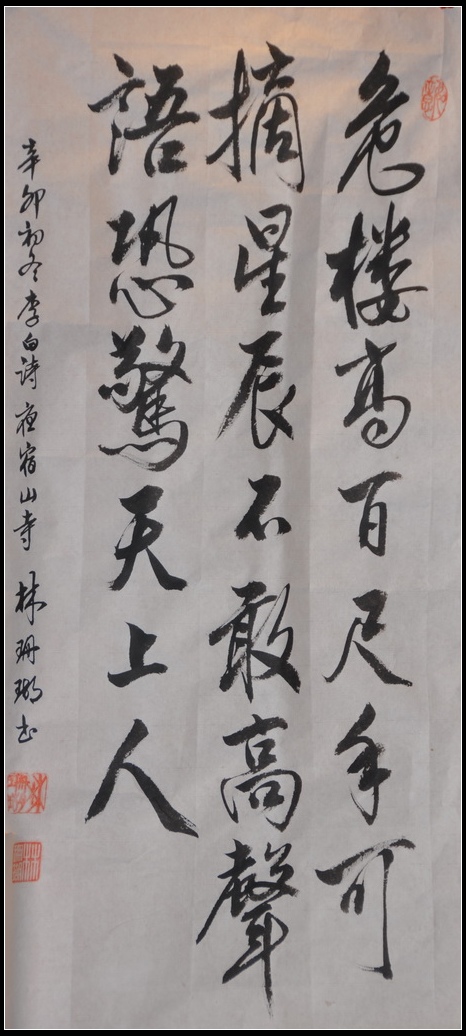 危楼高百尺手可
摘星辰不敢高聲
語恐驚天上人
辛卯初冬李白詩夜宿山寺 林珊瑚书